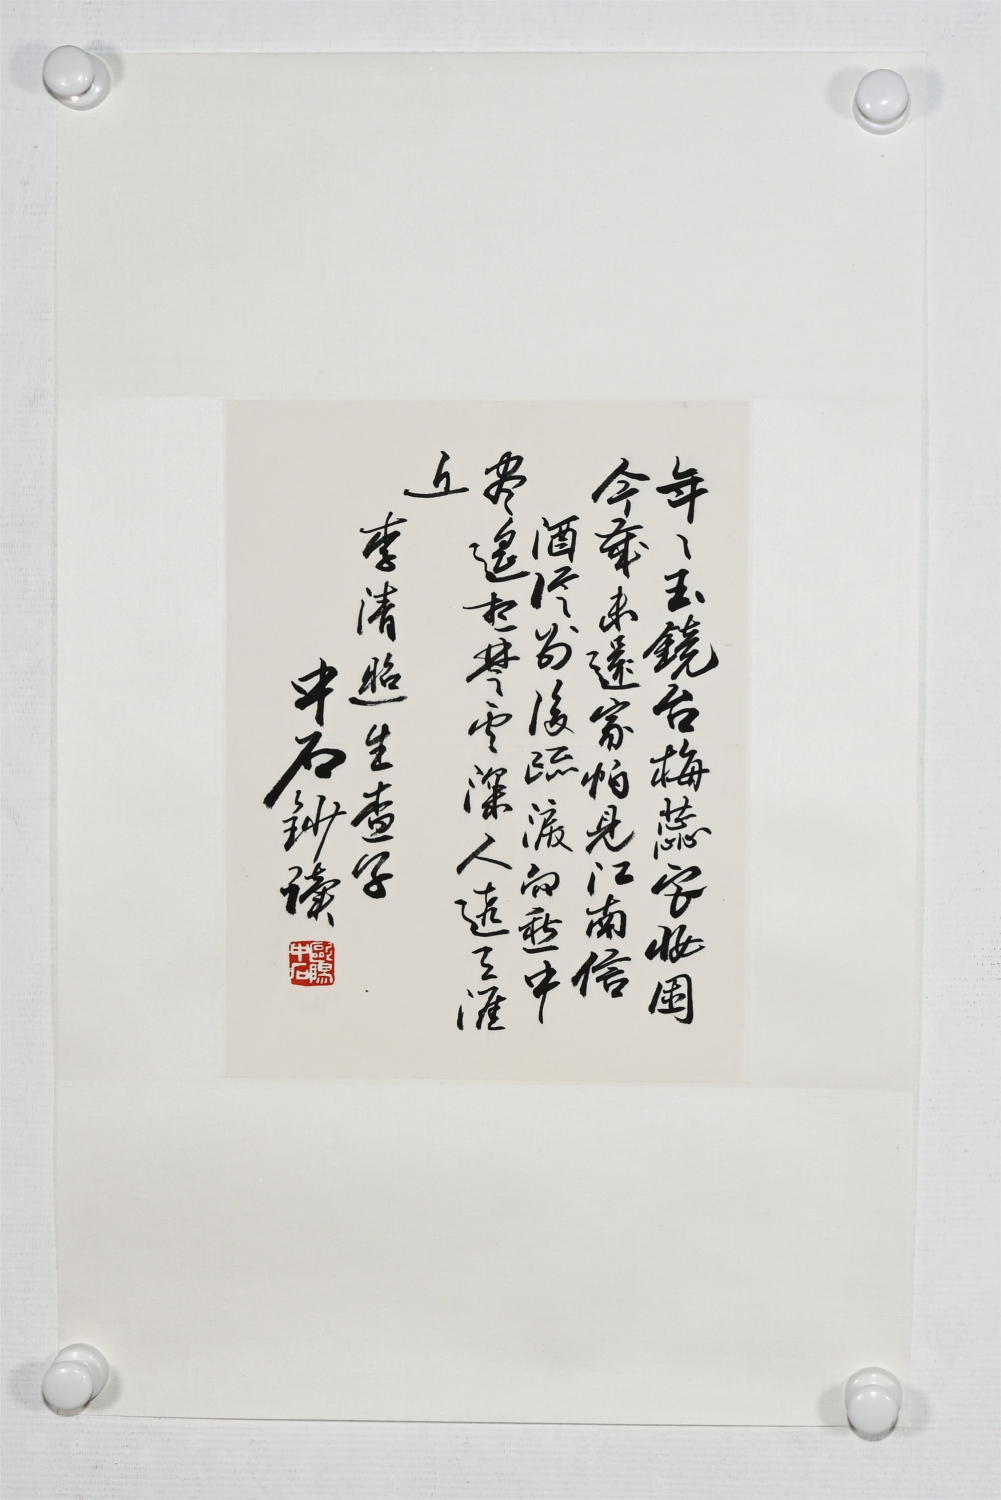 年〻玉鏡台梅蕊宮妝困
今歲未還家怕見江南信
酒從別後疏淚向愁中
盡遥想楚雲深人遠天涯
近
李清照生查子
中石鈔讀
歐陽中石